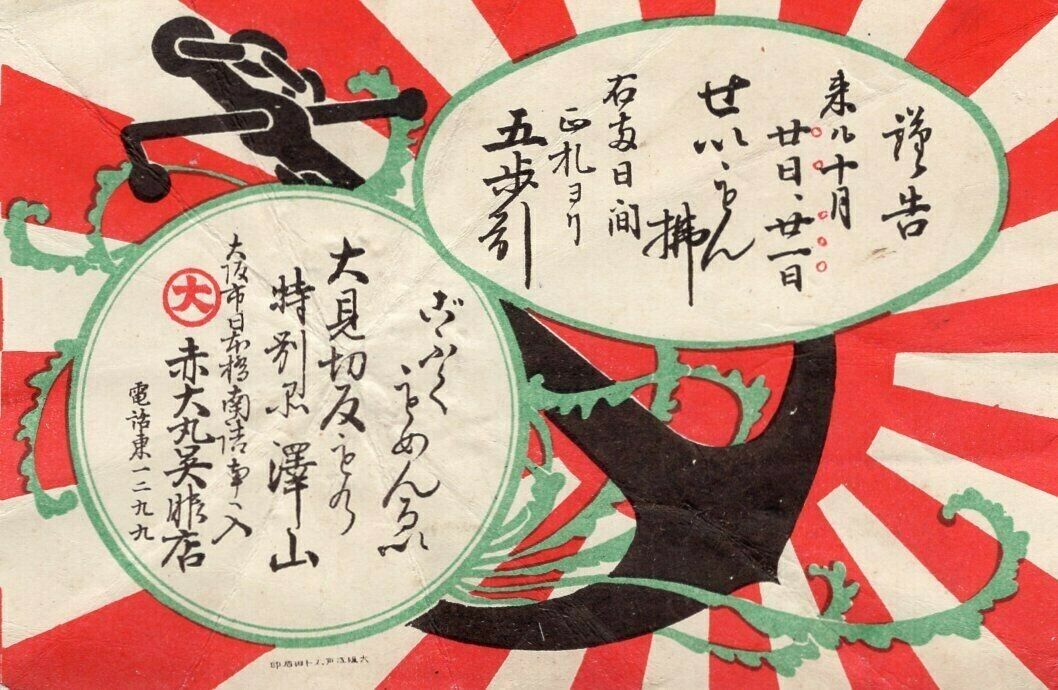 謹告
来ル十月
廿日、廿一日
せいもん
拂
右両日間
正札ヨリ
五歩引
ごふく
もめんるい
大見切反もの
特別品 澤山
大阪市日本橋南詰東入
大
赤大丸呉服店
電話東一二九九